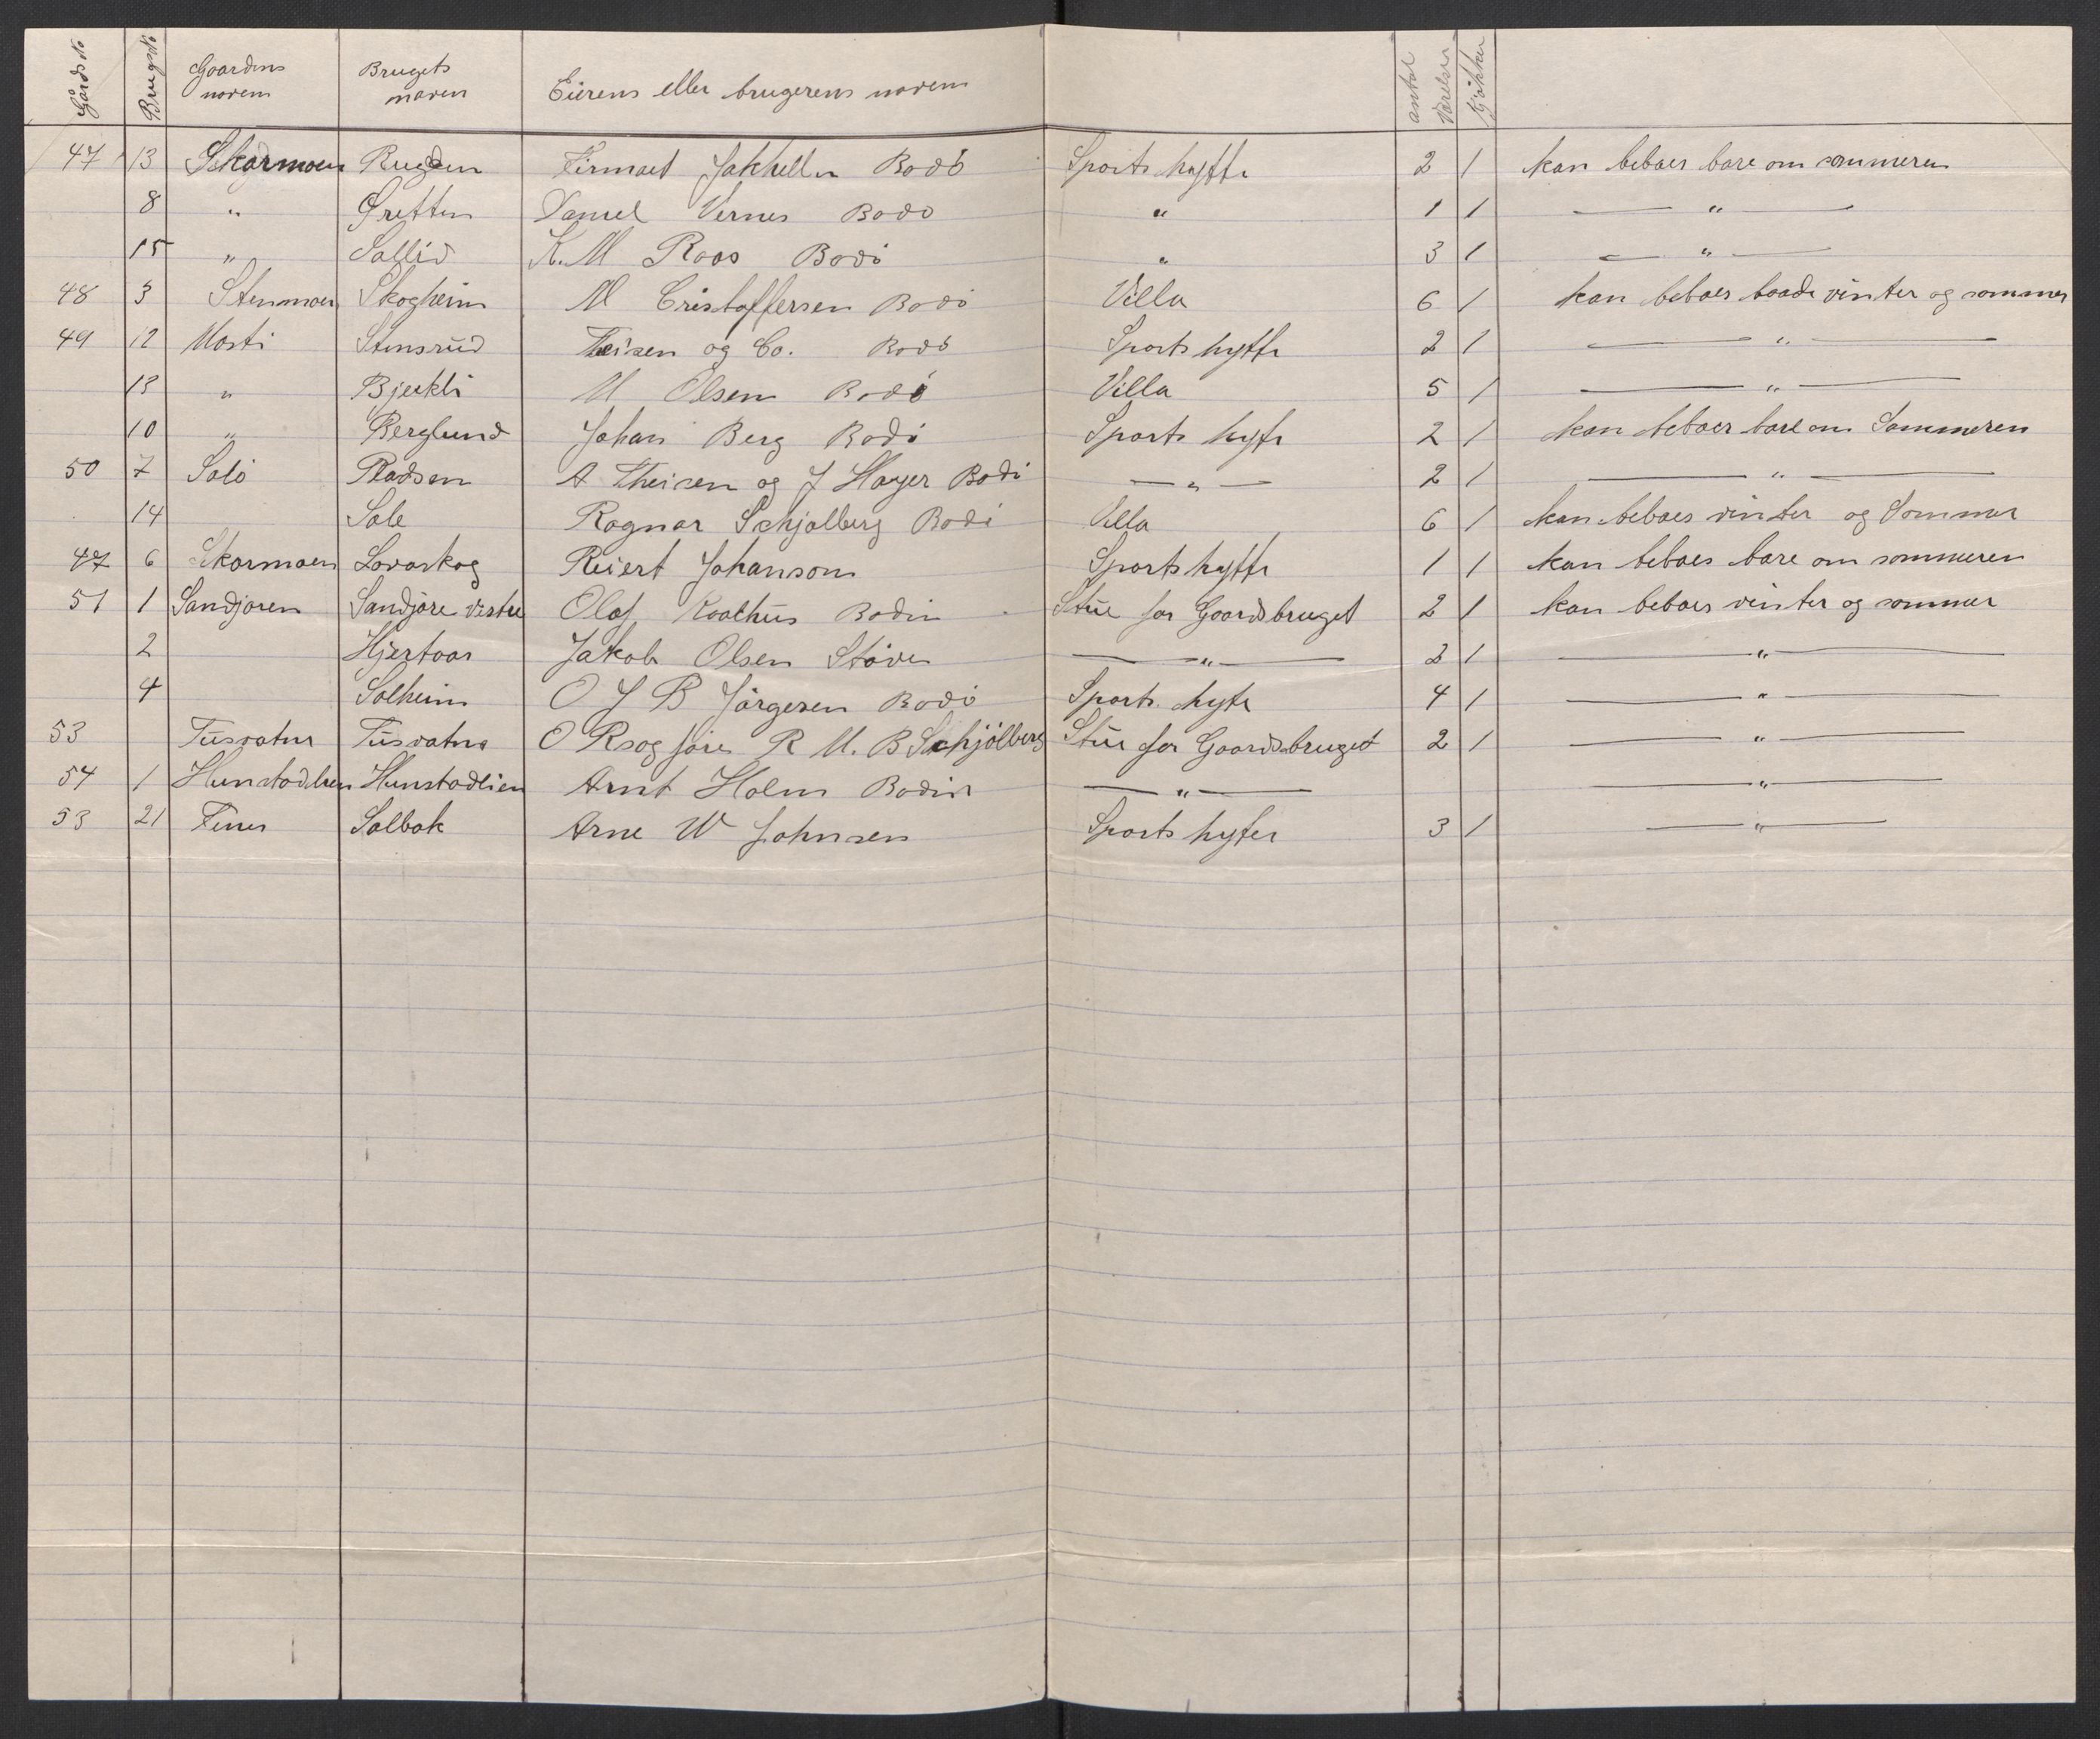 Gårds No Brugs No Gaardens navn Brugets navn Eierens eller brugerens navn antal Værelser Kjøkken
47 13 Skarmoen Rugden Firmaet Jakhelln Bodö Sports hytte 2 1 kan beboes bare om sommeren
8 " Gretten Daniel Vernes Bodö " 1 1 — " —
15 " Sollid K. M Roos Bodö " 3 1 — " —
48 3 Stenmoen Skogheim M Cristoffersen Bodö Villa 6 1 kan beboes baade vinter og sommer
49 12 Mosti Stensrud Theisen og Co. Bodö Sports hytte 2 1 — " —
13 " Bjerkli M Olsen Bodö Villa 5 1 — " —
10 " Berglund Johan Berg Bodö Sports hyte 2 1 kan beboes bare om Sommeren
50 7 Solö Pladsen A Theisen og J Hayer Bodö — " — 2 1 — " —
14 Sole Ragnar Schjølberg Bodö Villa 6 1 kan beboes vinter og Sommer
47 6 Skarmoen Lovaskog Reiert Johanson Sports hytte 1 1 kan beboes bare om sommeren
51 1 Sandjoren Sandjöre vestre Olaf Kvalhus Bodin Stue for Gaardsbruget 2 1 kan beboes vinter og sommer
2 Hjertaas Jakob Olsen Stöver — " — 2 1 — " —
4 Solheim O J B Jörgesen Bodö Sports hyte 4 1 — " —
53 Tusvatnr Tusvatna O R og R M. B Schjölberg Stue for Gaardsbruget 2 1 — " —
54 1 Hunstadlien Hunstadlien Arnt Holm Bodin — " — — " —
53 21 Fenes Solbak Arne W Johnsen Sports hyter 3 1 — " —